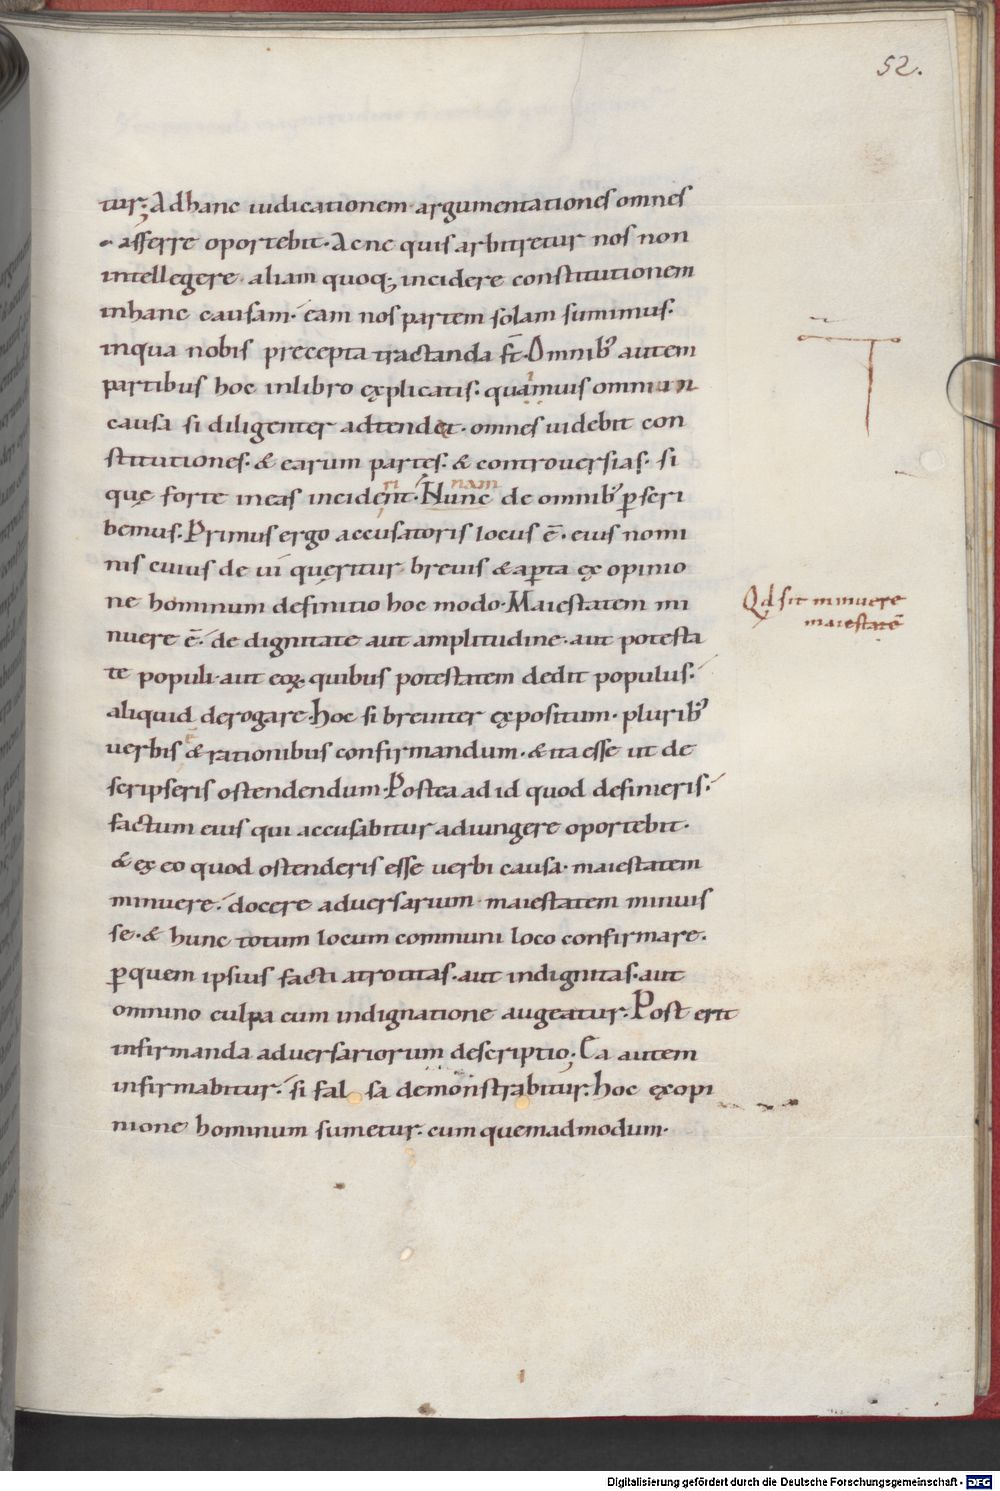 52.
tur; Ad hanc iudicationem argumentationes omnes
afferre oportebit. Ac ne quis arbitretur nos non
intellegere aliam quoq; incidere constitutionem
inhanc causam. eam nos partem solam sumimus.
inqua nobis precepta tractanda st̄. Omnib; autem
partibus hoc inlibro explicatis. quamuis omni in
causa si diligenter adtendet. omnes uidebit con
stitutiones. & earum partes. & controuersias. si
ri nam
quę forte ineas incident. Nunc de omnib; p̱seri
bemus. Primus ergo accusatoris locus ē. eius nomi
nis cuius de ui quęritur breuis & aꝑta ex opinio
ne hominum definitio hoc modo. Maiestatem mi
Qd sit minuere
nuere ē. de dignitate aut amplitudine. aut potesta
maiestatē
te populi aut eoꝝ. quibus potestatem dedit populus.
aliquid derogare. hoc si breuiter expositum. plurib;
uerbis & rationibus confirmandum. & ita esse ut de
scripseris ostendendum. Postea ad id quod definieris.
factum eius qui accusabitur adiungere oportebit.
& ex eo quod ostenderis esse uerbi causa. maiestatem
minuere. docere aduersarium maiestatem minuis
se. & hunc totum locum communi loco confirmare.
ꝑquem ipsius facti atrocitas. aut indignitas. aut
omnino culpa cum indignatione augeatur. Post erit
infirmanda aduersariorum descriptio; Ea autem
infirmabitur. si fal sa demonstrabitur. hoc exopi
nione hominum sumetur. cum quemadmodum.
Digitalisierung gefördert durch die Deutsche Forschungsgemeinschaft - DFG